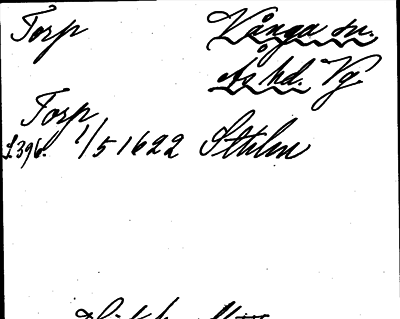 Torp Vånga sn.
Ås hd. Vg
Torp
f.396. 1/5 1622 Sthlm